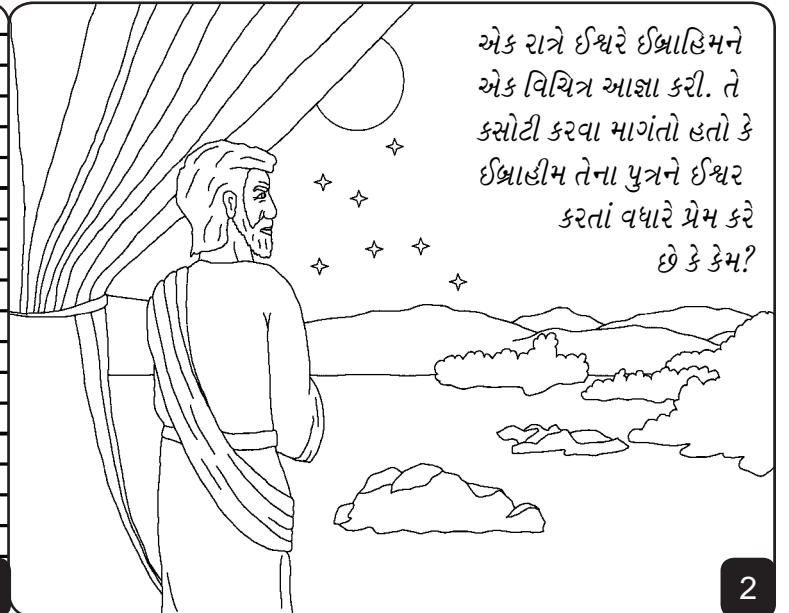 એક રાત્રે ઈશ્વરે ઈબ્રાહિમને
એક વિચિત્ર આજ્ઞા કરી. તે
કસોટી કરવા માગંતો હતો કે
ઈબ્રાહીમ તેના પુત્રને ઈશ્વર
કરતાં વધારે પ્રેમ કરે
છે કે કેમ?
2